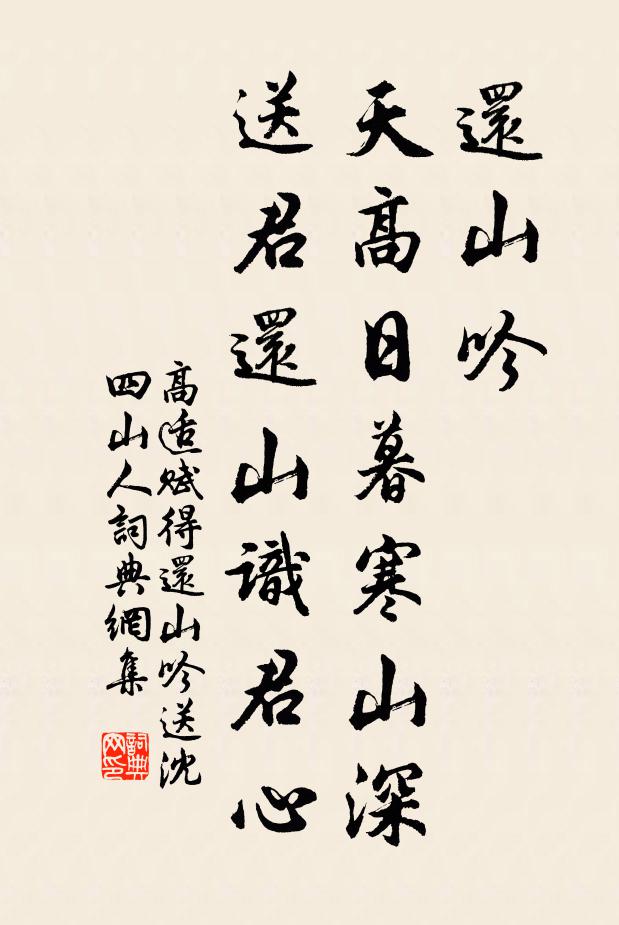 還山吟
天高日暮寒山深
送君還山識君心
高适賦得還山吟送沈
四山人詞典網集
詞典網印